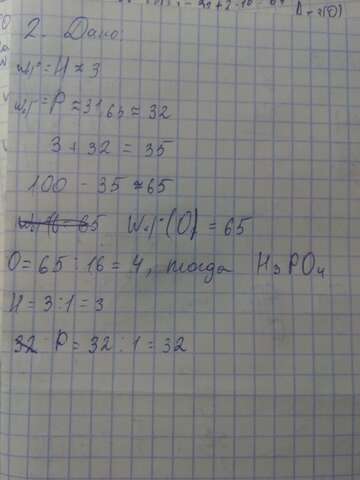 2. Дано:
W₁ = H ≈ 3
W₁ = P ≈ 31,65 ≈ 32
3 + 32 = 35
100 - 35 ≈ 65
W(O) = 65
O = 65 : 16 = 4, тогда H₃PO₄
H = 3 : 1 = 3
P = 32 : 1 = 32